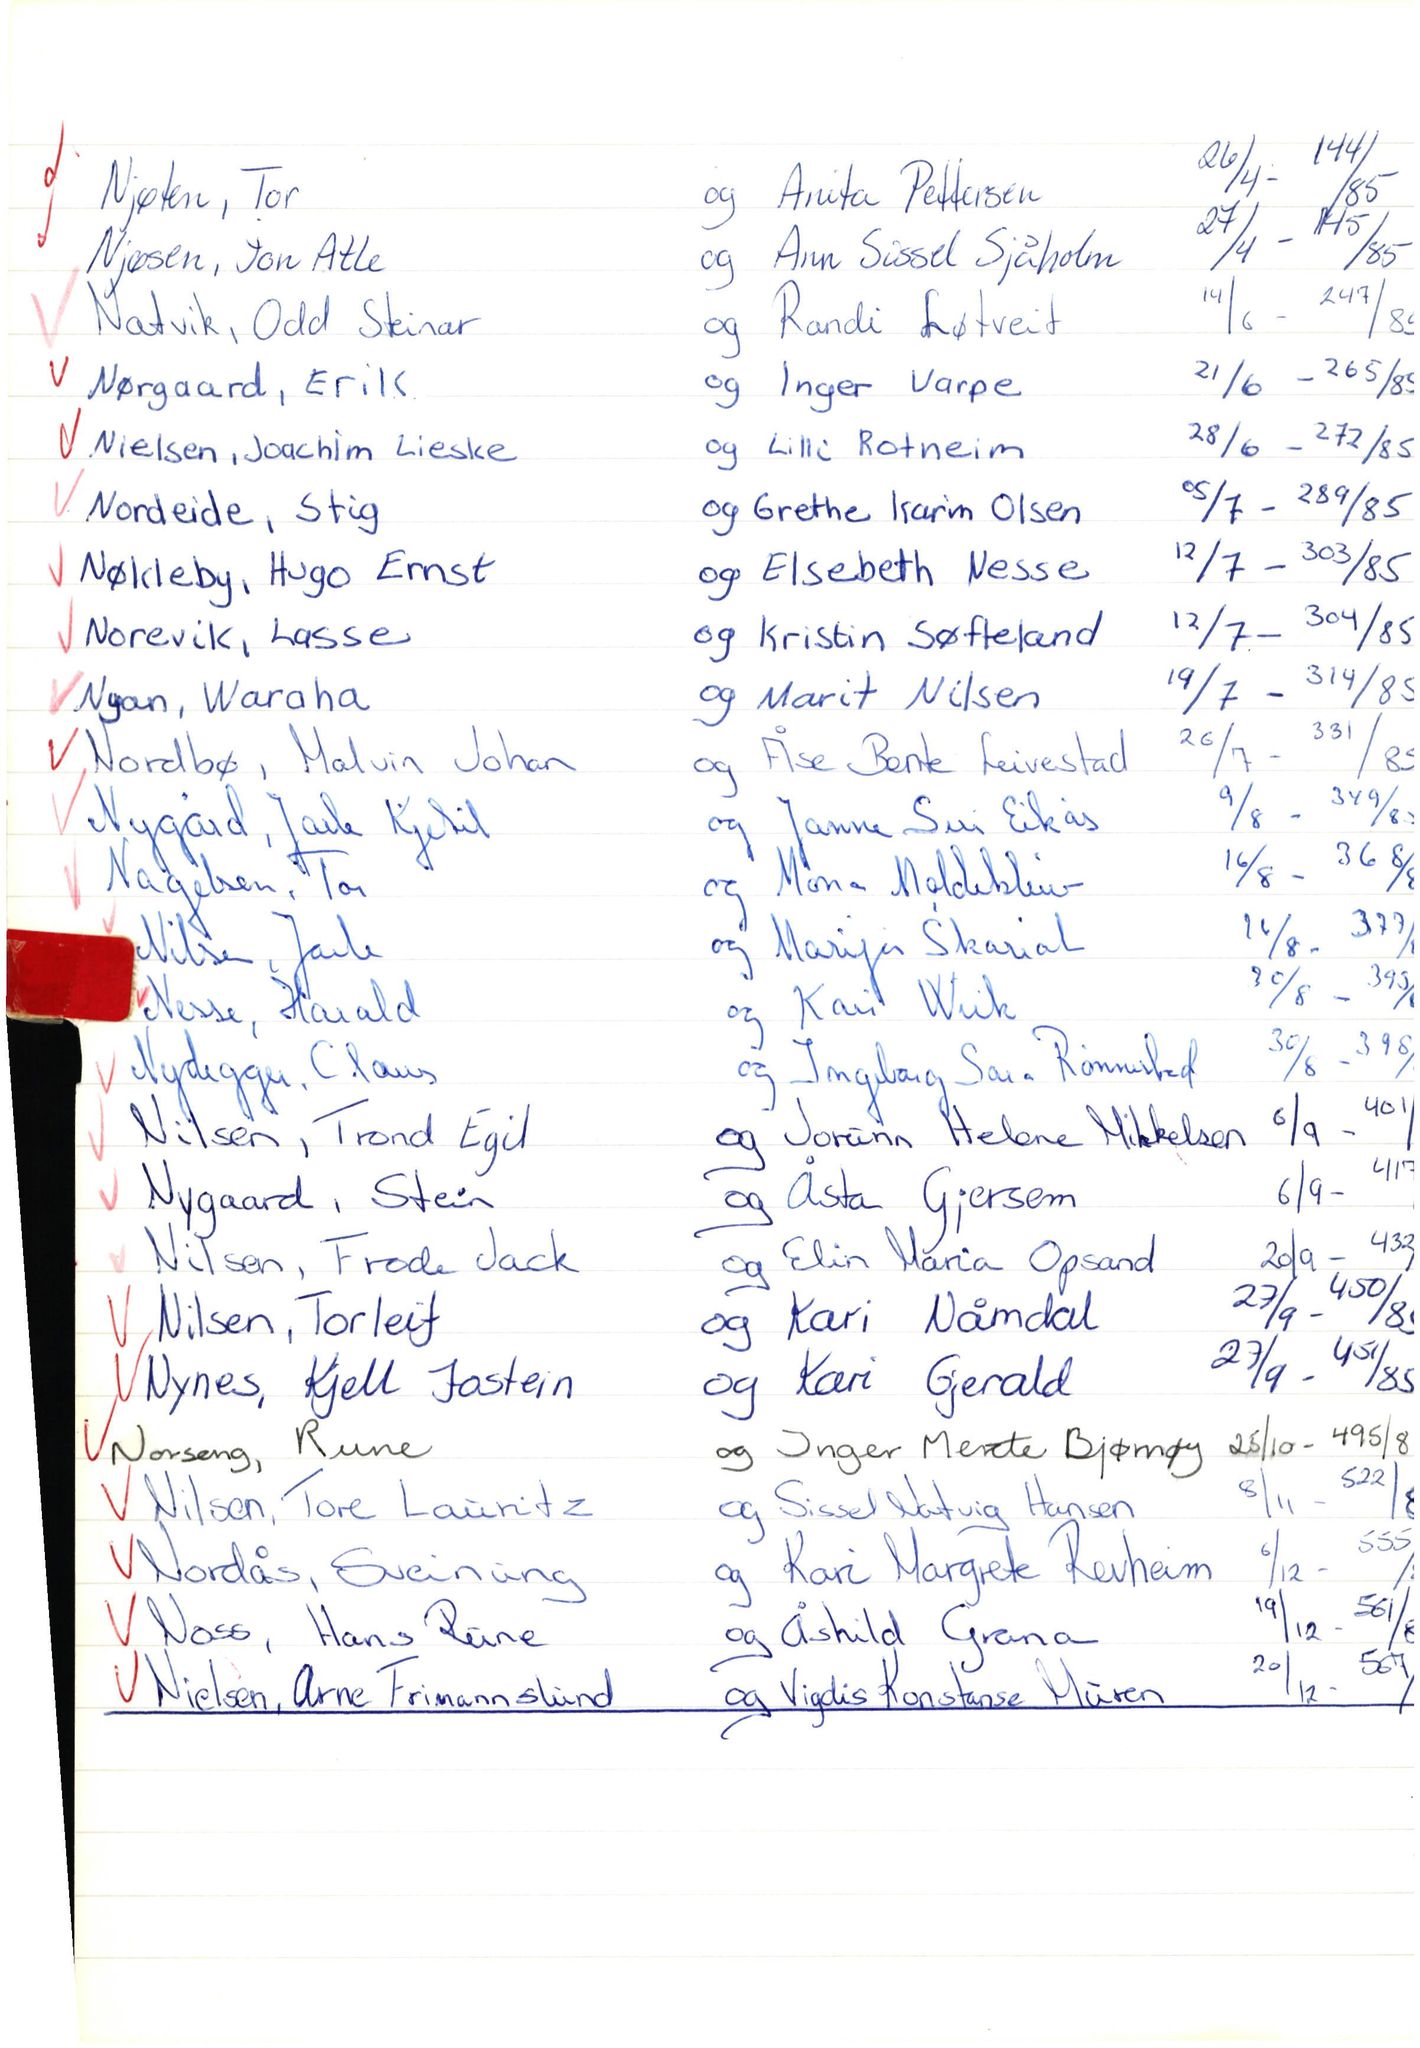 Njøten, Tor og Anita Pettersen 26/4 - 144/85
Njøsen, Jon Atle og Ann Sissel Sjåholm 27/4 - 145/85
Natvik, Odd Steinar og Randi Løtveit 14/6 - 247/85
Nørgaard, Erik og Inger Varpe 21/6 - 265/85
Nielsen, Joachim Lieske og Lilli Rotneim 28/6 - 272/85
Nordeide, Stig og Grethe Karin Olsen 05/7 - 289/85
Nøkleby, Hugo Ernst og Elsebeth Nesse 12/7 - 303/85
Norevik, Lasse og Kristin Søfteland 12/7 - 304/85
Nyan, Waraha og Marit Nilsen 19/7 - 314/85
Nordbø, Malvin Johan og Åse Bente Leivestad 26/7 - 331/85
Nygård, Jarle Kjetil og Janne Siri Eikås 9/8 - 349/8
Nagelsen, Tor og Mona Moldekleiv 16/8 - 368/8
Nilsen, Jarle og Marija 16/8 - 377/
Nesse, Harald og Kari Wiik 30/8 - 395/
Nydegger, Claus og Ingeborg Sara 30/8 - 398/
Nilsen, Trond Egil og Jorunn Helene Mikkelsen 6/9 - 401/
Nygaard, Stein og Åsta Gjersem 6/9 - 417
Nilsen, Frode Jack og Elin Maria Opsand 20/9 - 432
Nilsen, Torleif og Kari Nåmdal 27/9 - 450/85
Nynes, Kjell Jostein og Kari Gjerald 27/9 - 451/85
Norseng, Rune og Inger Merete Bjørnøy 25/10 - 495/8
Nilsen, Tore Lauritz og Sissel Natvig Hansen 8/11 - 522/8
Nordås, Sveinung og Kari Margrete Revheim 6/12 - 555/
Noss, Hans Rune og Åshild Grana 19/12 - 561/8
Nielsen, Arne Frimannslund og Vigdis Konstanse Muren 20/12 - 567/